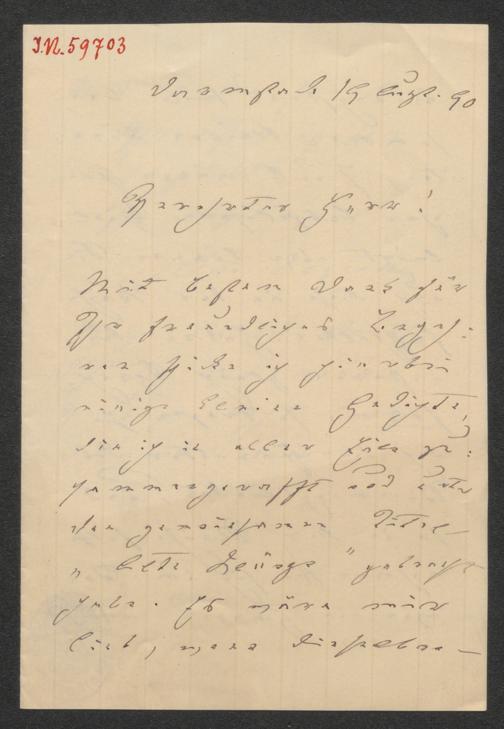 I.N. 59703
Darmstadt 19 Aug. 90
Verehrter Herr!
Mit bestem Dank für
Ihr freundliches Begeh-
ren schicke ich hierbei
einige kleine Gedichte,
die ich in aller Eile zu-
sammengerafft und unter
dem gemeinsamen Titel
"Alte Klänge" gebracht
habe. Es wäre mir
lieb, wenn dieselben